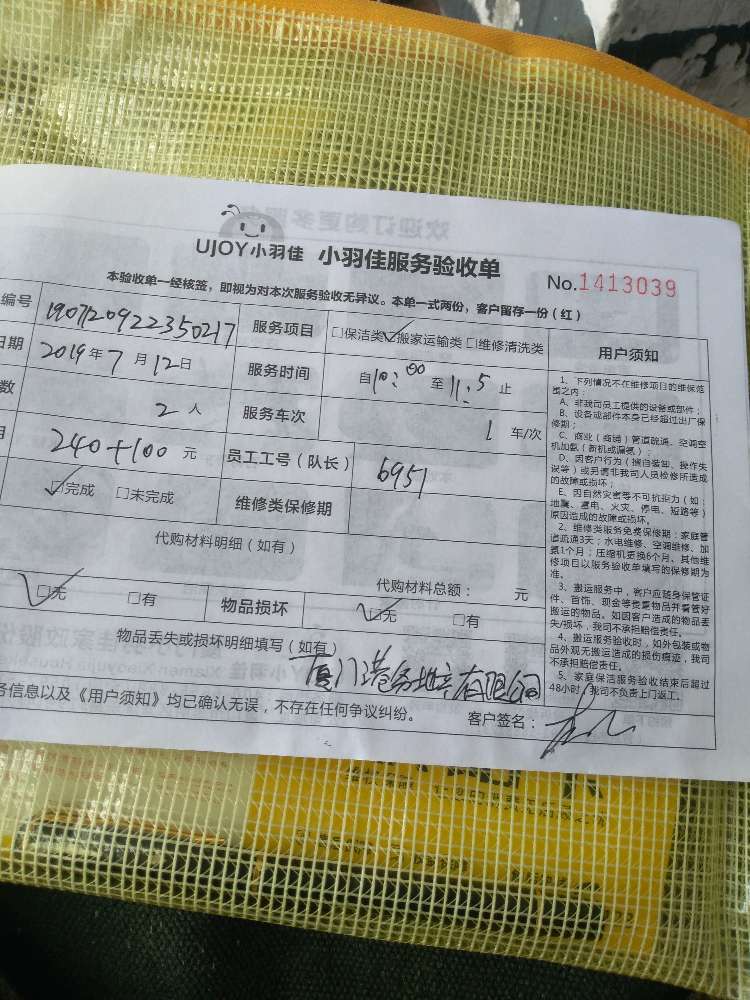 UJOY小羽佳 小羽佳服务验收单
No.1413039
本验收单一经核签，即视为对本次服务验收无异议。本单一式两份，客户留存一份（红）
编号 1907120922350217 服务项目 □保洁类 ☑搬家运输类 □维修清洗类
日期 2019年7月12日 服务时间 自10:00至11:5止
数 2人 服务车次 1 车/次
240+100元 员工工号（队长） 6951
☑完成 □未完成 维修类保修期
代购材料明细（如有）
代购材料总额： 元
☑无 □有 物品损坏 ☑无 □有
物品丢失或损坏明细填写（如有）
厦门港务地产有限公司
务信息以及《用户须知》均已确认无误，不存在任何争议纠纷。 客户签名：
用户须知
1、下列情况不在维修项目的维保范
围之内：
A、非我司员工提供的设备或部件；
B、设备或部件本身已经超过出厂保
修期；
C、商业（商铺）管道疏通、空调空
机加氨（新机或漏氨）；
D、因客户行为（擅自装卸、操作失
误等）或另请非我司人员检修所造成
的故障或损坏；
E、因自然灾害等不可抗拒力（如：
地震、雷电、火灾、停电、短路等）
原因造成的故障或损坏。
2、维修类服务免费保修期：家庭管
道疏通3天；水电维修、空调维修、加
氨1个月；压缩机更换6个月。其他维
修项目以服务验收单填写的保修期为
准。
3、搬运服务中，客户应随身保管证
件、首饰、现金等贵重物品并看管好
搬运的物品。如因客户造成的物品丢
失/损坏，我司不承担赔偿责任。
4、搬运服务验收时，如外包装或物
品外观无搬运造成的损伤痕迹，我司
不承担赔偿责任。
5、家庭保洁服务验收结束后超过
48小时，我司不负责上门返工。